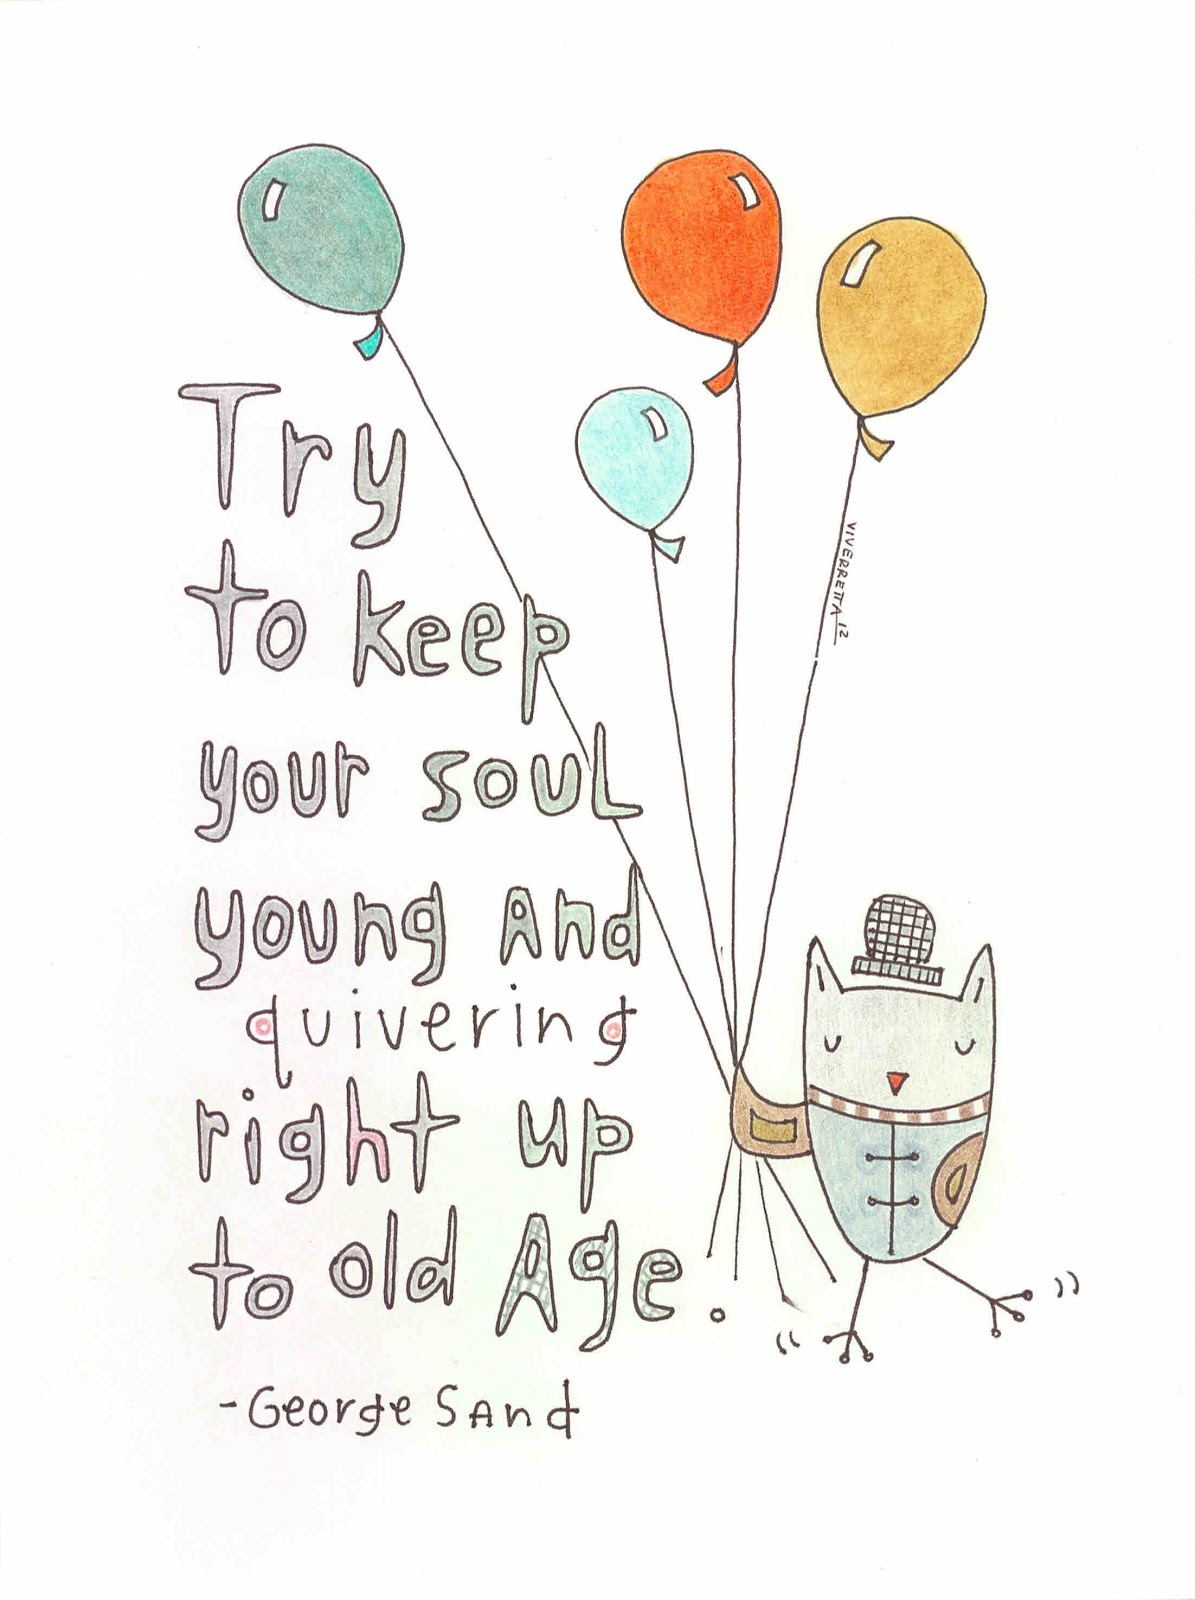 Try
to keep
your soul
young And
quivering
right up
to old Age.
- George Sand
VIVERRETTA 12